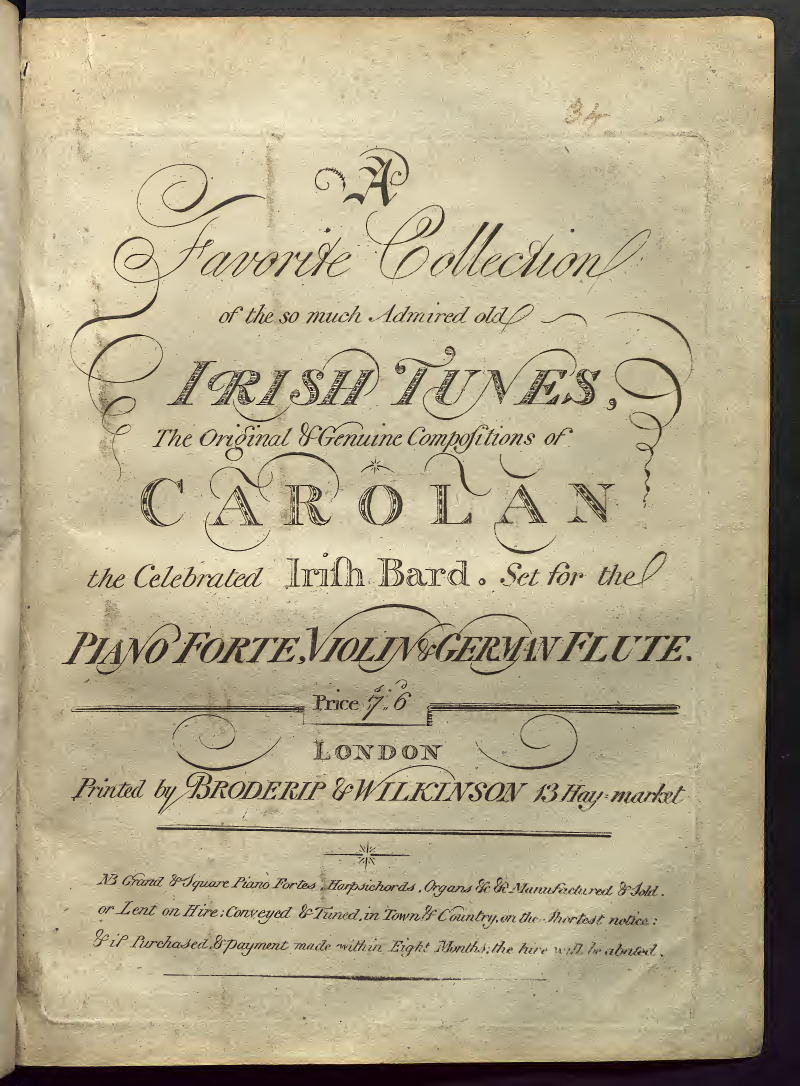 34
A
Favorite Collection
of the so much Admired old
IRISH TUNES,
The Original & Genuine Compoſitions of
CAROLAN
the Celebrated Iriſh Bard. Set for the
PIANO FORTE, VIOLIN & GERMAN FLUTE.
Price 7s,, 6d
LONDON
Printed by BRODERIP & WILKINSON 13 Hay-market
NB Grand & Square Piano Fortes, Harpsichords, Organs &c &c Manufactured & Sold.
or Lent on Hire; Conveyed & Tuned, in Town & Country, on the Shortest notice:
& if Purchased, & payment made within Eight Months; the hire will be abated.